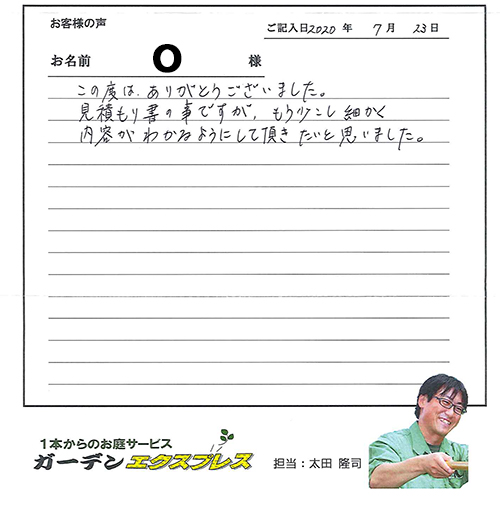 お客様の声
ご記入日2020年 7月 23日
お名前 O 様
この度は、ありがとうございました。
見積もり書の事ですが、もう少こし細かく
内容がわかるようにして頂きたいと思いました。
1本からのお庭サービス
ガーデンエクスプレス
担当:太田 隆司